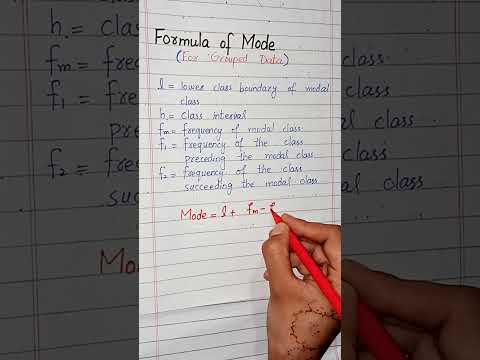 Formula of Mode
(For Grouped Data)
l = lower class boundary of modal
class
h = class interval
fm = frequency of modal class
f1 = frequency of the class
preceding the modal class
f2 = frequency of the class
succeeding the modal class
Mode = l + fm - f